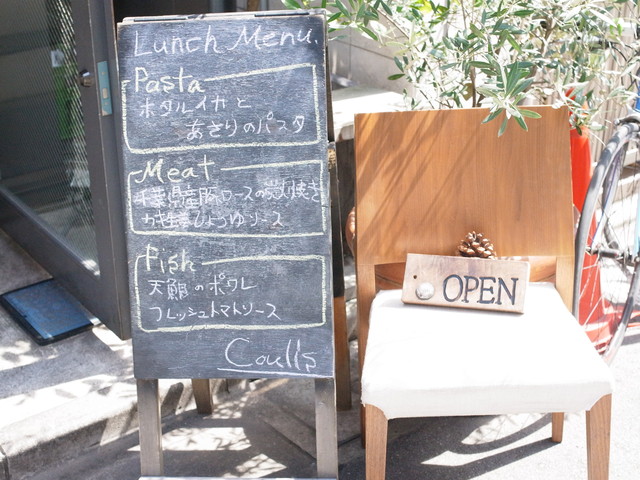 Lunch Menu.
Pasta
ホタルイカと
あさりのパスタ
Meat
千葉県産豚ロースの炭火焼き
Fish
天鯛のポワレ
フレッシュトマトソース
Coulls
OPEN